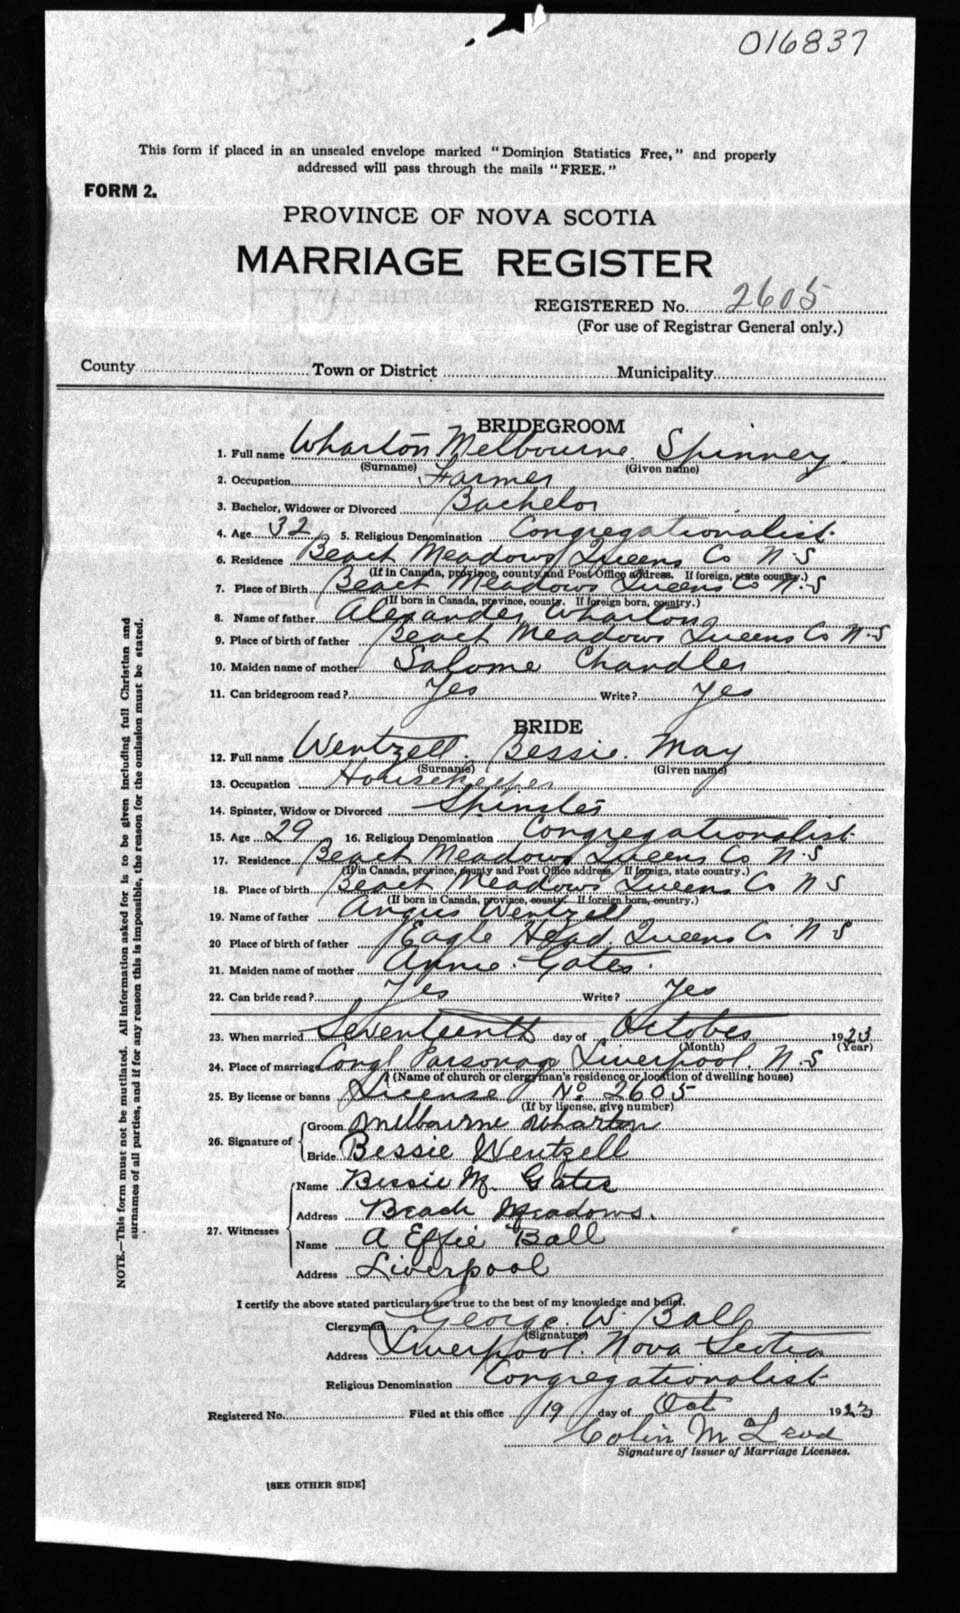 016837
This form if placed in an unsealed envelope marked "Dominion Statistics Free," and properly
addressed will pass through the mails "FREE."
FORM 2.
PROVINCE OF NOVA SCOTIA
MARRIAGE REGISTER
REGISTERED No. 2605
(For use of Registrar General only.)
County Town or District Municipality
BRIDEGROOM
1. Full name Wharton Melbourne Spinney.
(Surname) (Given name)
2. Occupation Farmer
3. Bachelor, Widower or Divorced Bachelor
4. Age 32 5. Religious Denomination Congregationalist
6. Residence Beach Meadows Queens Co N.S
(If in Canada, province, county and Post Office address. If foreign, state country.)
7. Place of Birth Beach Meadows Queens Co N.S
(If born in Canada, province, county. If foreign born, country.)
8. Name of father Alexander Wharton
9. Place of birth of father Beach Meadows Queens Co N.S
10. Maiden name of mother Salome Chandler
11. Can bridegroom read? Yes Write? Yes
BRIDE
12. Full name Wentzell. Bessie. May
(Surname) (Given name)
13. Occupation Housekeeper
14. Spinster, Widow or Divorced Spinster
15. Age 29 16. Religious Denomination Congregationalist
17. Residence Beach Meadows Queens Co N.S
(If in Canada, province, county and Post Office address. If foreign, state country.)
18. Place of birth Beach Meadows Queens Co N S
(If born in Canada, province, county. If foreign born, country.)
19. Name of father Angus Wentzell
20 Place of birth of father Eagle Head Queens Co N S
21. Maiden name of mother Annie. Gates.
22. Can bride read? Yes Write? Yes
23. When married Seventeenth day of October 1923
(Month) (Year)
24. Place of marriage Congl Parsonage Liverpool. N.S
(Name of church or clergyman's residence or location of dwelling house)
25. By license or banns License No 2605
(If by license, give number)
26. Signature of Groom Melbourne Wharton
Bride Bessie Wentzell
27. Witnesses Name Bessie M. Gates
Address Beach Meadows.
Name A Effie Ball
Address Liverpool
I certify the above stated particulars are true to the best of my knowledge and belief.
Clergyman George. W. Ball
(Signature)
Address Liverpool. Nova Scotia
Religious Denomination Congregationalist
Registered No. Filed at this office 19 day of Oct 1923
Colin McLeod
Signature of Issuer of Marriage Licenses.
[SEE OTHER SIDE]
NOTE.—This form must not be mutilated. All information asked for is to be given including full Christian and
surnames of all parties, and if for any reason this is impossible, the reason for the omission must be stated.